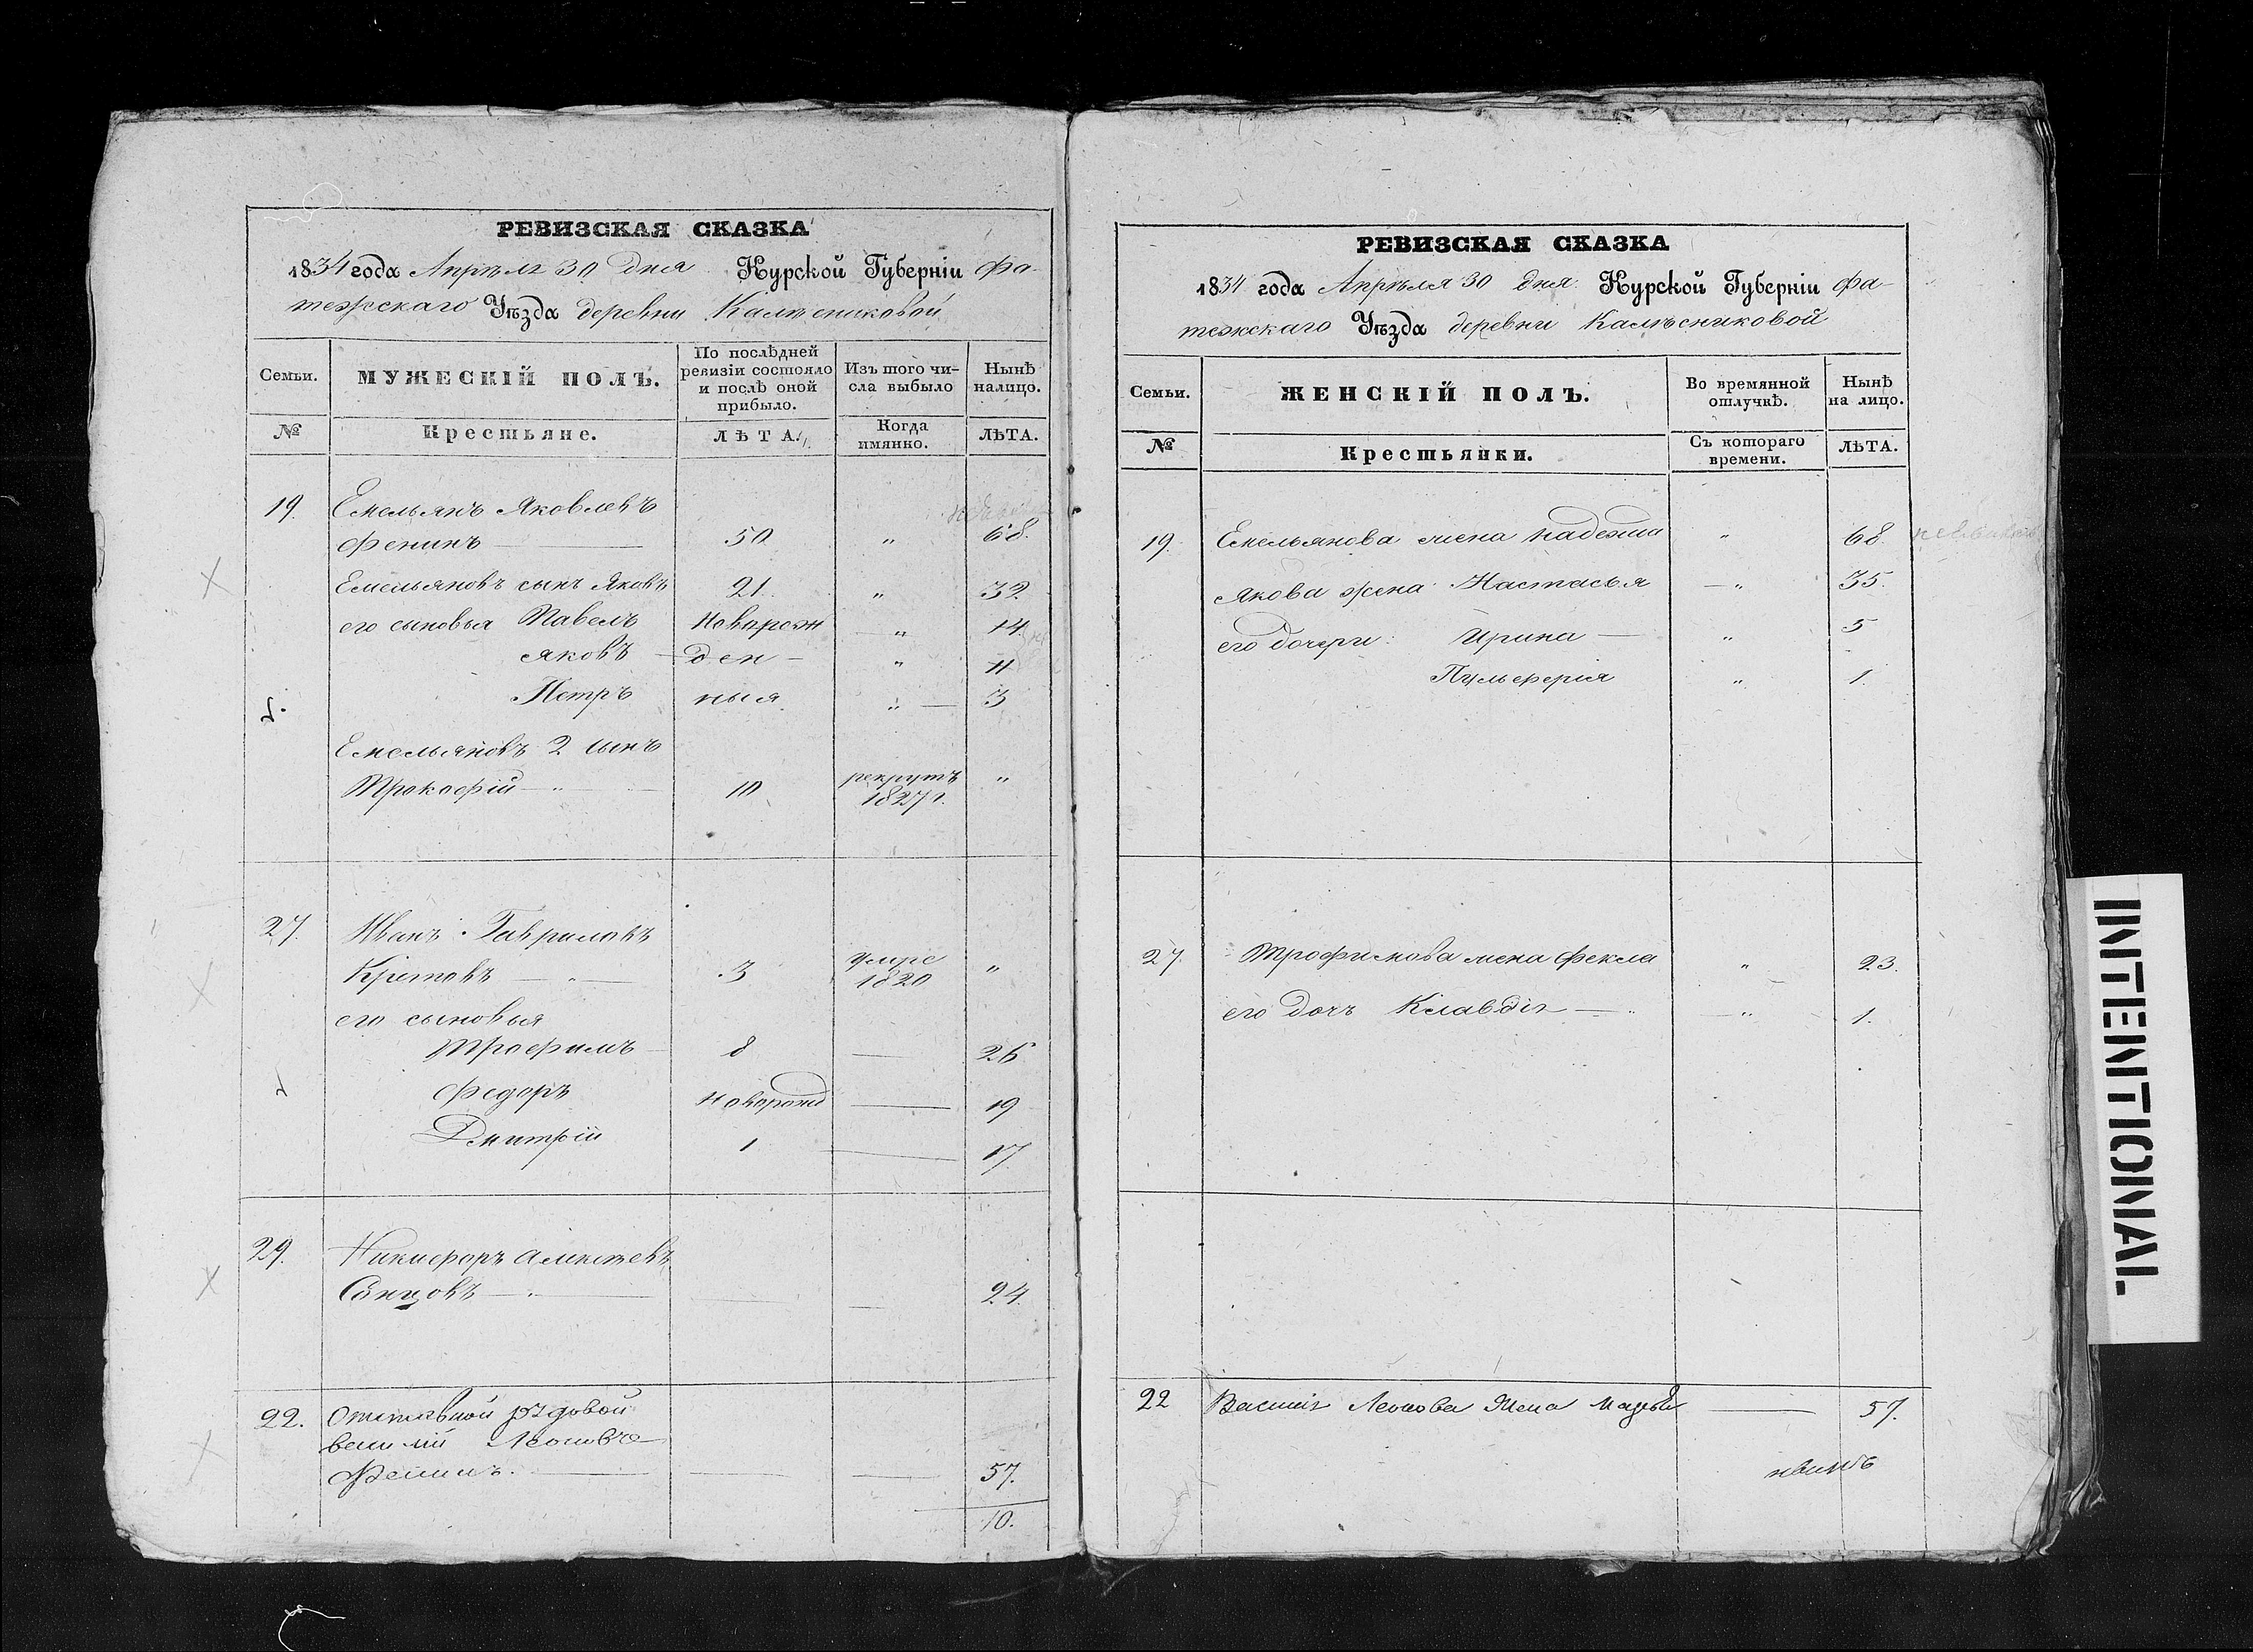 РЕВИЗСКАЯ СКАЗКА
1834 года Апрѣля 30 дня Курской Губерніи Фа-
тежскаго Уѣзда деревни Калѣсниковой
Семьи.
МУЖЕСКІЙ ПОЛЪ.
По послѣдней ревизіи состояло и послѣ оной прибыло.
Изъ того чи-сла выбыло
Нынѣ налицо.
№
Крестьяне.
ЛѢТА.
Когда имянно.
ЛѢТА.
19. Емельянъ Яковлевъ
Фенинъ — 50 " 68.
Емельяновъ сынъ Яковъ 21. " 32
его сыновья Павелъ Новорож " 14
Яковъ — ден — " 11
Петръ ныя " — 3
Емельяновъ 2 сынъ
Прокофій — " 10 рекрутъ 1827 г. "
27. Иванъ Гавриловъ
Кретовъ — " — 3 умре 1820 "
его сыновья
Трофимъ 8 — 26
Федоръ Новорожд — 19
Дмитрій 1 — 17
29. Никифоръ Алексѣевъ
Сѣнцовъ — " — — — 24.
22. Отставной рядовой
Василій Леоновъ
Фенинъ. — — — 57.
10.
РЕВИЗСКАЯ СКАЗКА
1834 года Апрѣля 30 дня Курской Губерніи Фа-
тежскаго Уѣзда деревни Калѣсниковой
Семьи.
ЖЕНСКІЙ ПОЛЪ.
Во времянной отлучкѣ.
Нынѣ на лицо.
№
Крестьянки.
Съ котораго времени.
ЛѢТА.
19. Емельянова жена Надежда " 68
Якова жена Настасья — " 35.
его дочери: Ирина — " 5
Пульферія " 1.
27. Трофимова жена Фекла " 23.
его дочь Клавдія — " — " 1.
22 Василія Леонова жена — 57.
INTENTIONAL